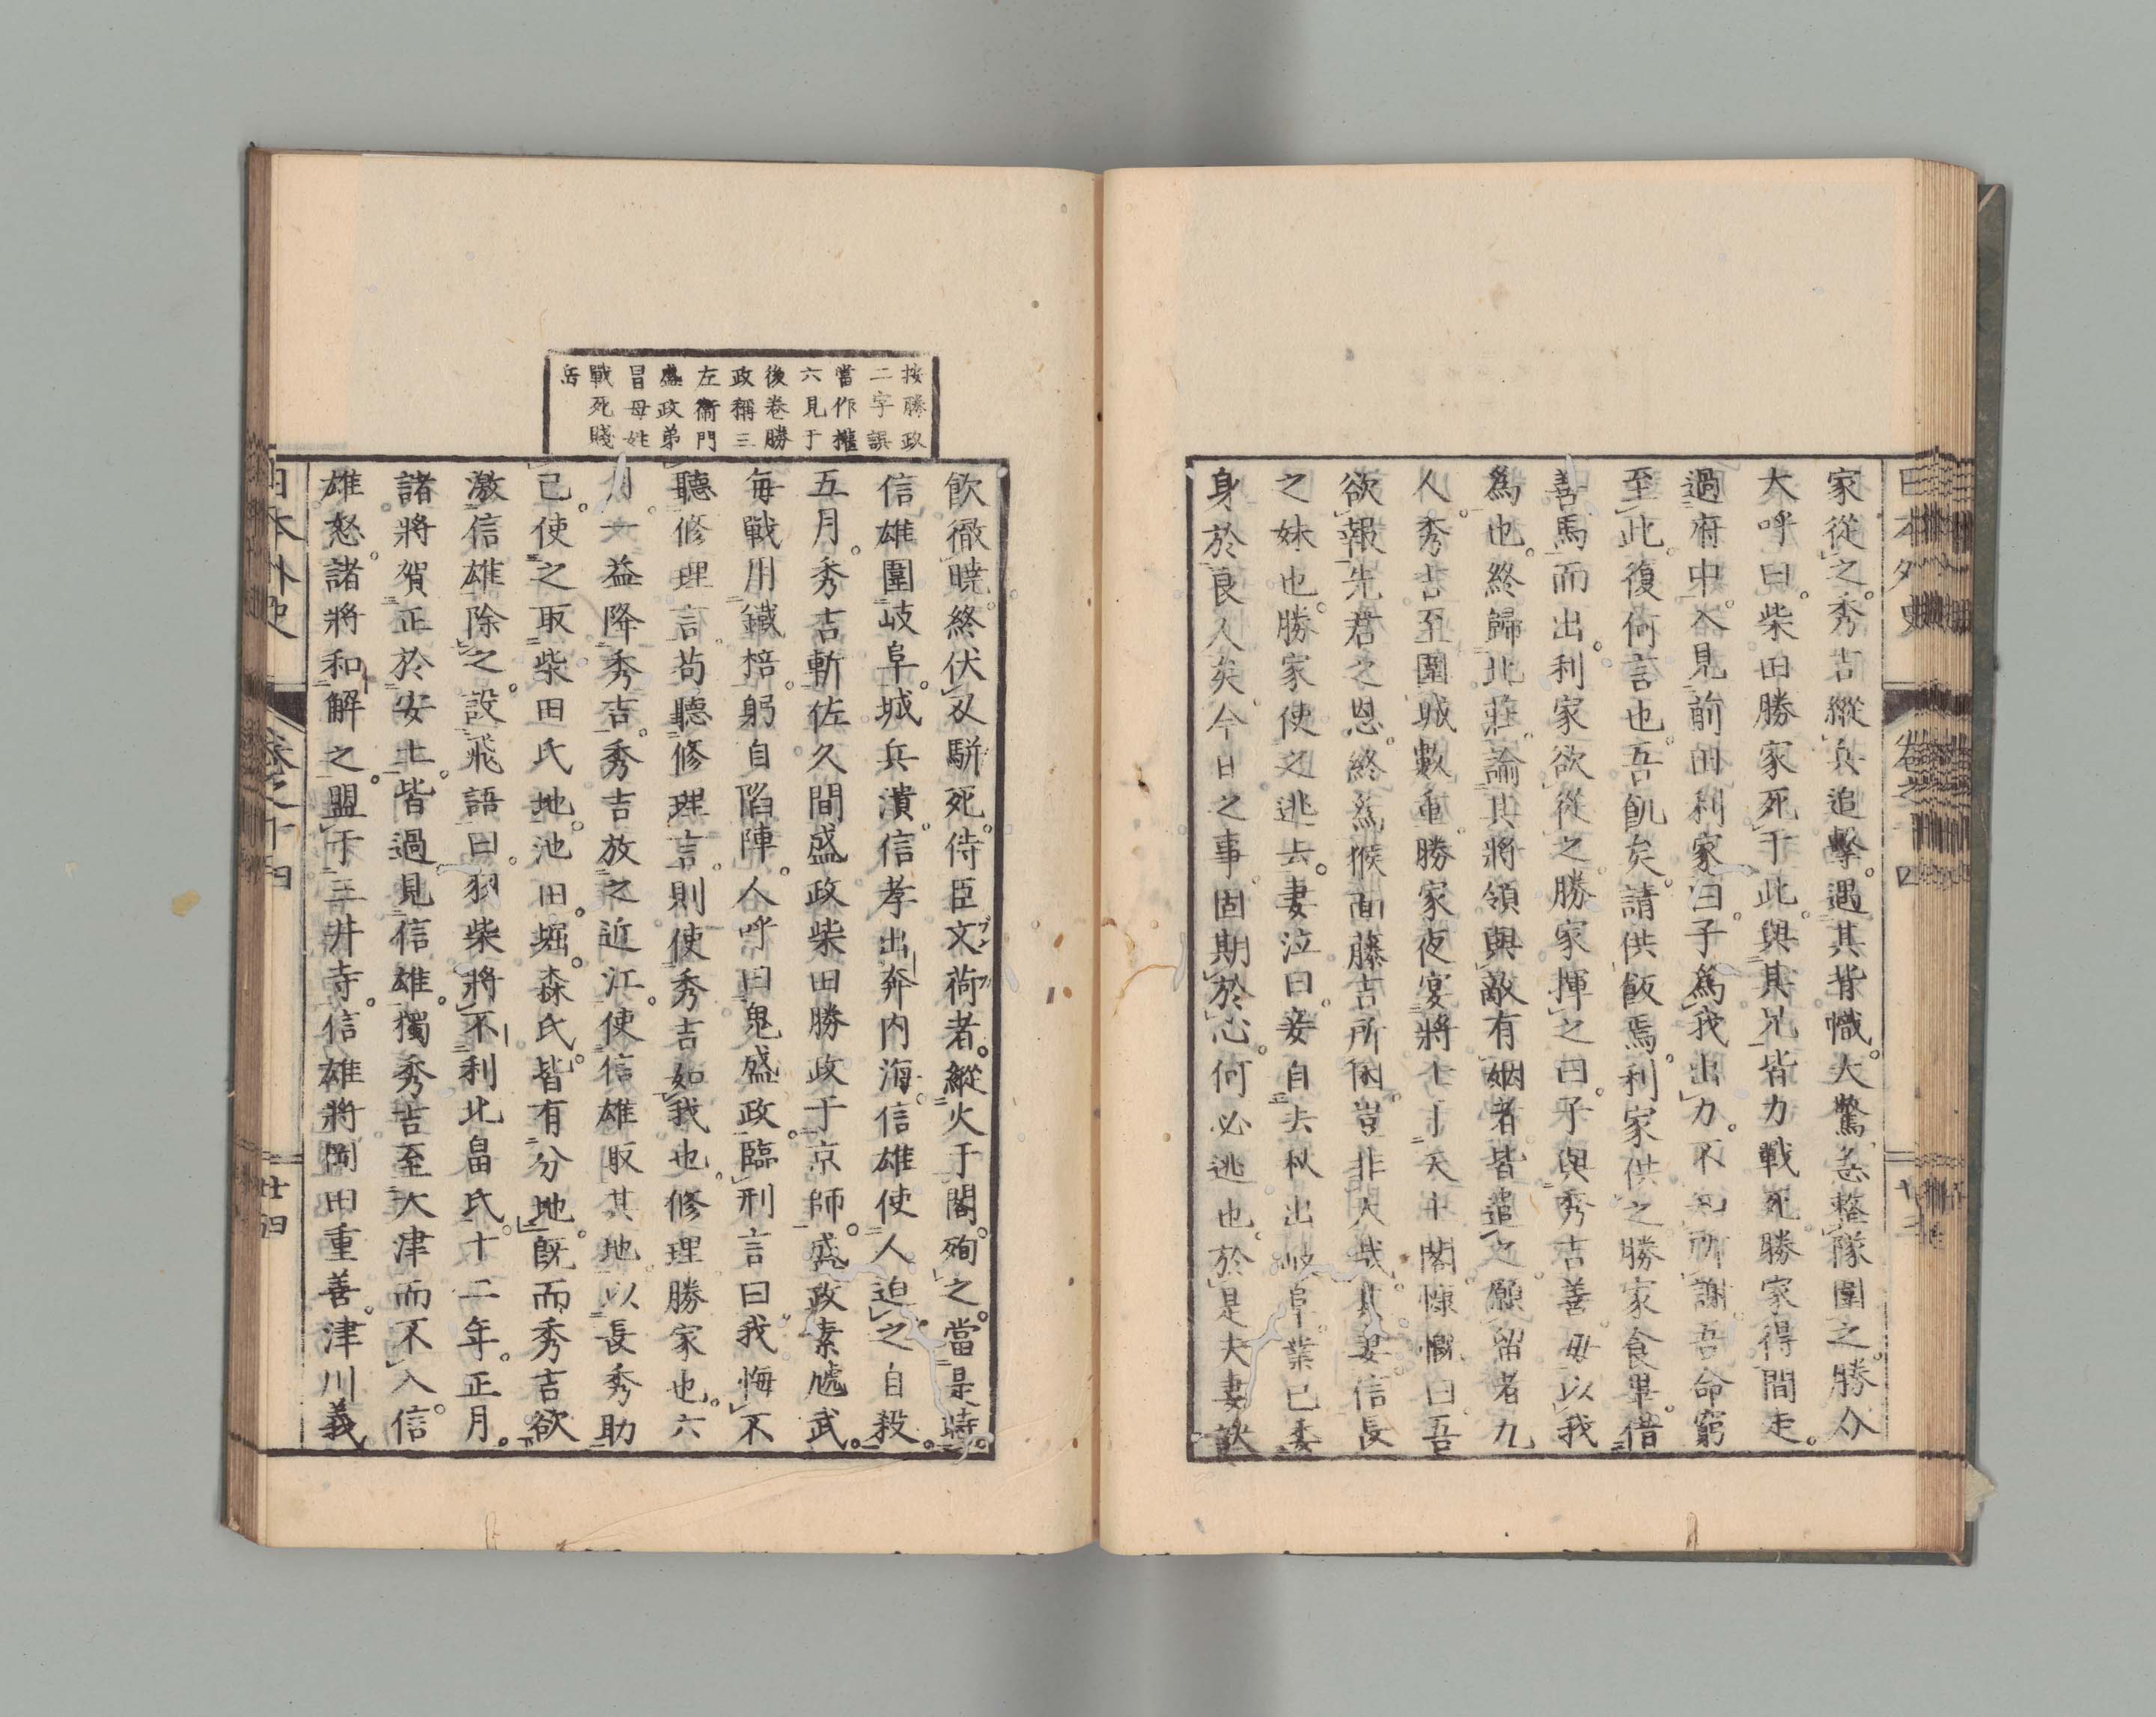 家從之秀吉縱兵追擊。遇其背幟。大驚急整隊圍之。勝介
大呼曰。柴田勝家死于此。與其兄皆力戰死勝家得間走。
過府中。入見前田利家曰。子爲我出力。不知所謝。吾命窮
至此。復何言也。吾飢矣。請供飯焉。利家供之勝家食畢。借
善馬而出。利家欲從之。勝家揮之曰。子與秀吉善。毋以我
爲也。終歸北莊。論其將領與敵有姻者皆遣之願留者九
人。秀吉至圍城數重。勝家夜宴將士于天主閣慷慨曰。吾
欲報先君之恩。終爲猴面藤吉所困。豈非天哉。其妻信長
之妹也。勝家使之逃去。妻泣曰。妾自去秋出岐阜。業已委
身於良人矣。今日之事。固期於心。何必逃也。於是夫妻訣
日本外史 卷之十四 廿三
按勝政
二字誤
當作權
六見于
後卷勝
政稱三
左衞門
盛政弟
冒母姓
戰死賤
岳
飮徹曉。終伏刃駢死。侍臣文荷者。縱火于閣。殉之。當是時。
信雄圍岐阜。城兵潰。信孝出奔内海。信雄使人迫之自殺。
五月。秀吉斬佐久間盛政柴田勝政于京師。盛政素虓武。
每戰用鐵棓。躬自陷陣。人呼曰鬼盛政。臨刑言曰。我悔不
聽修理言。苟聽修理言。則使秀吉如我也。修理勝家也。六
月。一益降秀吉。秀吉放之近江。使信雄取其地。以長秀助
己。使之取柴田氏地。池田。堀。森氏。皆有分地。既而秀吉欲
激信雄除之。設飛語曰。羽柴將不利北畠氏。十二年。正月。
諸將賀正於安土。皆過見信雄。獨秀吉至大津而不入。信
雄怒。諸將和解之。盟于三井寺。信雄將岡田重善。津川義
日本外史 卷之十四 廿四